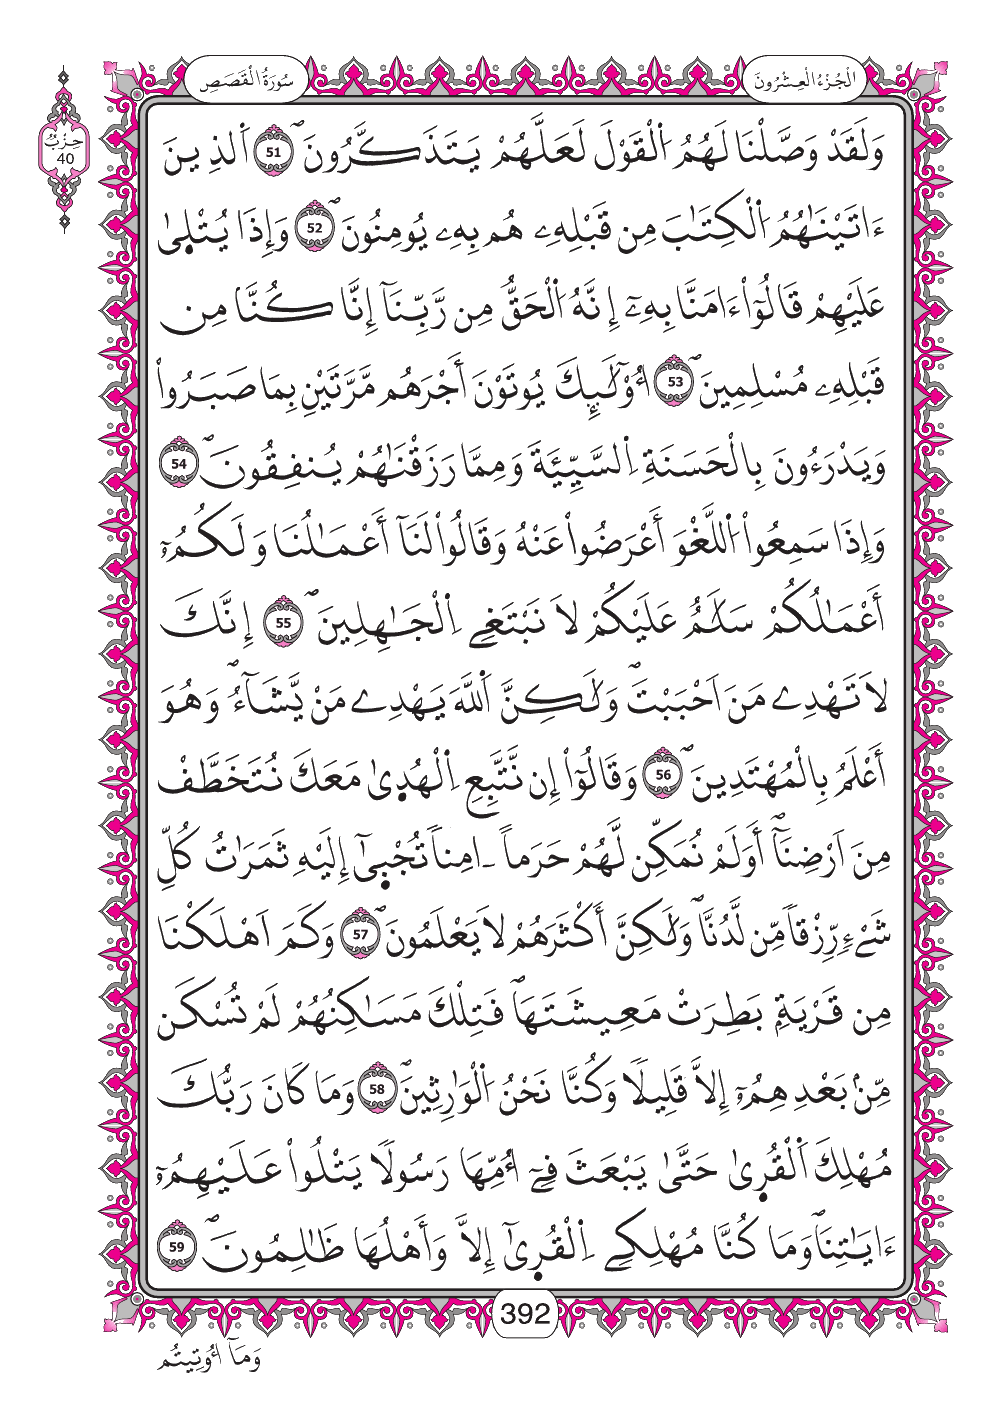 الْجُزْءُ الْعِشْرُونَ
سُورَةُ الْقَصَصِ
حِزْبُ
40
وَلَقَدْ وَصَّلْنَا لَهُمُ اُ۬لْقَوْلَ لَعَلَّهُمْ يَتَذَكَّرُونَۖ 51 اَ۬لذِينَ
ءَاتَيْنَٰهُمُ اُ۬لْكِتَٰبَ مِن قَبْلِهِۦ هُم بِهِۦ يُومِنُونَۖ 52 وَإِذَا يُتْلٜىٰ
عَلَيْهِمْ قَالُوٓاْ ءَامَنَّا بِهِۦٓ إِنَّهُ اُ۬لْحَقُّ مِن رَّبِّنَآ إِنَّا كُنَّا مِن
قَبْلِهِۦ مُسْلِمِينَۖ 53 أُوْلَٰٓئِكَ يُوتَوْنَ أَجْرَهُم مَّرَّتَيْنِ بِمَا صَبَرُواْ
وَيَدْرَءُونَ بِالْحَسَنَةِ اِ۬لسَّيِّئَةَ وَمِمَّا رَزَقْنَٰهُمْ يُنفِقُونَۖ 54
وَإِذَا سَمِعُواْ اُ۬للَّغْوَ أَعْرَضُواْ عَنْهُ وَقَالُواْ لَنَآ أَعْمَٰلُنَا وَلَكُمُۥٓ
أَعْمَٰلُكُمْ سَلَٰمٌ عَلَيْكُمْ لَا نَبْتَغِے اِ۬لْجَٰهِلِينَۖ 55 إِنَّكَ
لَا تَهْدِے مَنَ اَحْبَبْتَۖ وَلَٰكِنَّ اَ۬للَّهَ يَهْدِے مَنْ يَّشَآءُۖ وَهُوَ
أَعْلَمُ بِالْمُهْتَدِينَۖ 56 وَقَالُوٓاْ إِن نَّتَّبِعِ اِ۬لْهُدٜىٰ مَعَكَ نُتَخَطَّفْ
مِنَ اَرْضِنَآۖ أَوَلَمْ نُمَكِّن لَّهُمْ حَرَماً اٰمِناً تُجْبٜىٰٓ إِلَيْهِ ثَمَرَٰتُ كُلِّ
شَےْءٖ رِّزْقاً مِّن لَّدُنَّاۖ وَلَٰكِنَّ أَكْثَرَهُمْ لَا يَعْلَمُونَۖ 57 وَكَمَ اَهْلَكْنَا
مِن قَرْيَةِۢ بَطِرَتْ مَعِيشَتَهَاۖ فَتِلْكَ مَسَٰكِنُهُمْ لَمْ تُسْكَن
مِّنۢ بَعْدِهِمُۥٓ إِلَّا قَلِيلًا وَكُنَّا نَحْنُ اُ۬لْوَٰرِثِينَۖ 58 وَمَا كَانَ رَبُّكَ
مُهْلِكَ اَ۬لْقُرٜىٰ حَتَّىٰ يَبْعَثَ فِےٓ أُمِّهَا رَسُولًا يَتْلُواْ عَلَيْهِمُۥٓ
ءَايَٰتِنَاۖ وَمَا كُنَّا مُهْلِكِے اِ۬لْقُرٜىٰٓ إِلَّا وَأَهْلُهَا ظَٰلِمُونَۖ 59
392
وَمَآ أُوتِيتُم